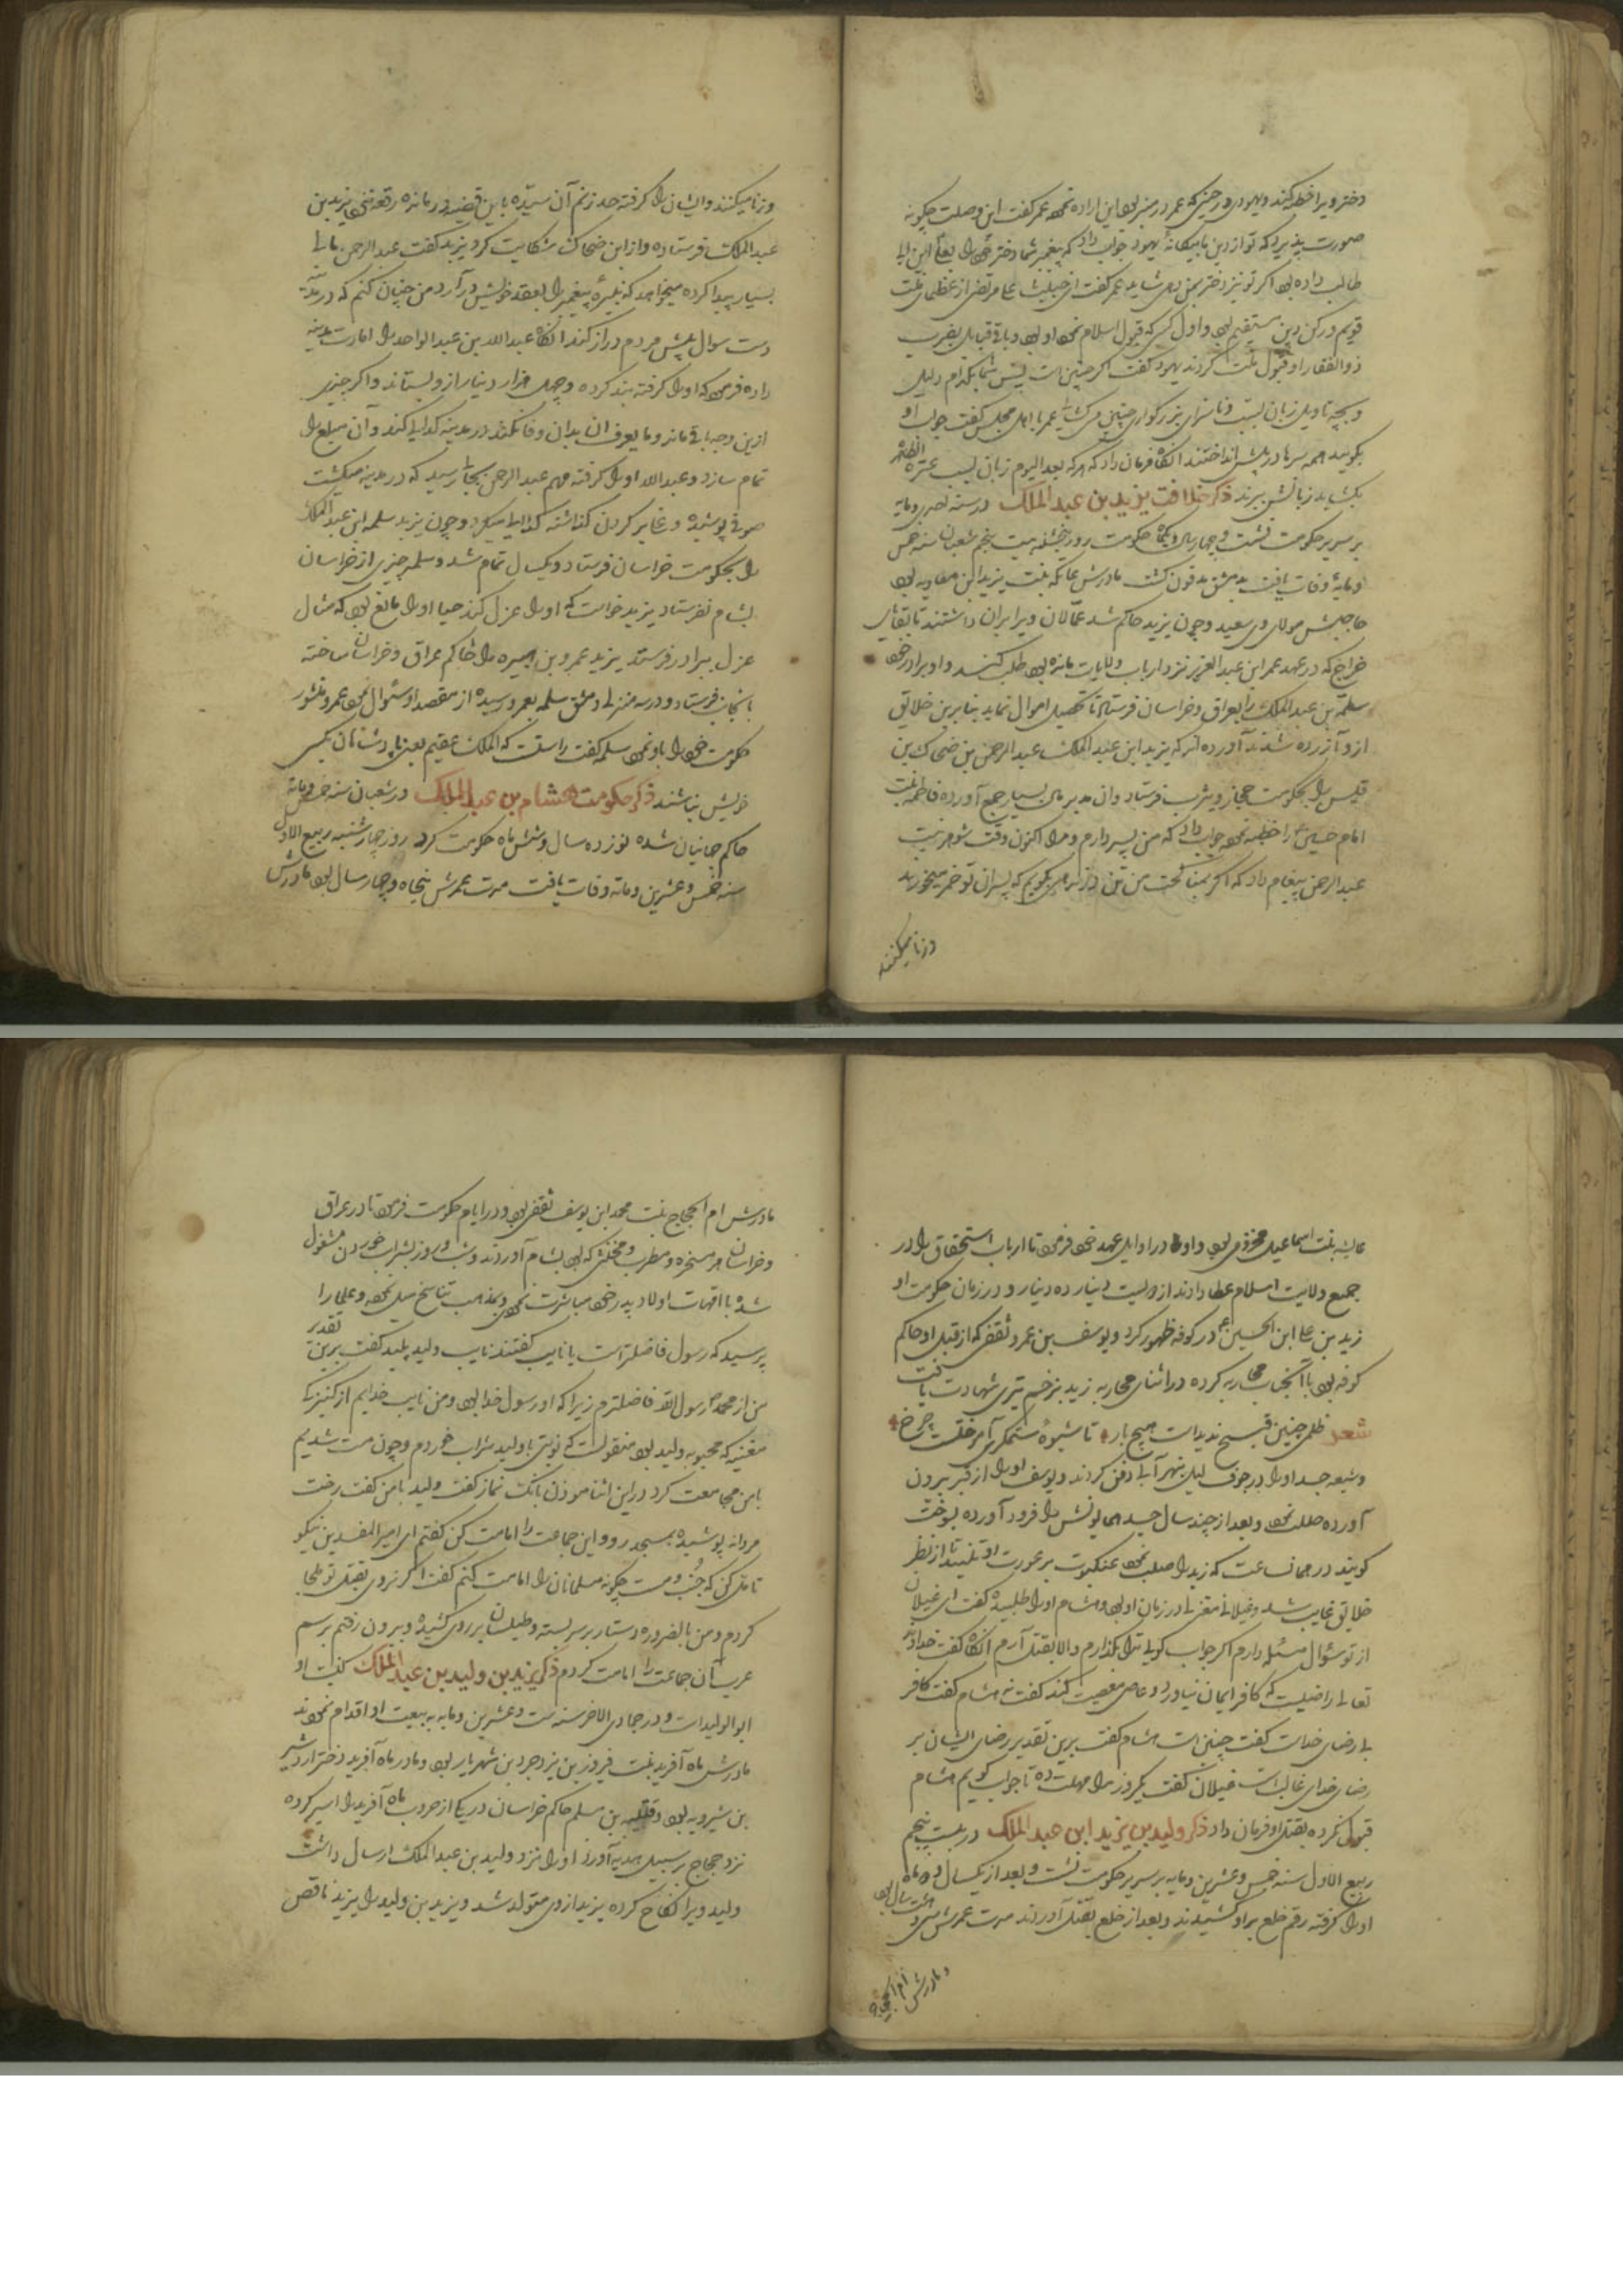 دختر ویرا خطبه کند و یهودی در حینی که عمر در منبر بود این اراده نمود عمر گفت این وصلت چگونه
صورت پذیرد که تو از دین ما بیکانهٔ یهود جواب داد که پیغمبر شما دختر خود را بعلی ابن ابی
طالب داده بود اگر تو نیز دختر بمن دهی شاید عمر گفت علی مرتضی از عظمای ملت
قویم و رکن دین مستقیم بود و اول کسی که قبول اسلام نمود او بود و باقی قبایل بضرب
ذوالفقار او قبول ملت کردند یهود گفت اگر چنین است پس شما بکدام دلیل
و بچه تاویل زبان بسب و ناسزای بزرگواری چنین می‌کشایید عمر با اهل مجلس گفت جواب او
بگویید همه سرها در پیش انداختند آنگاه فرمان داد که هر که بعد الیوم زبان بسب عترة الطاهره
بکشاید زبانش ببرند ذکر خلافت یزید بن عبد الملک در سنه احدی و مایه
بر سریر حکومت نشست و چهار سال و یکماه حکومت روز پنجشنبه بیست پنجم شعبان سنه خمس
و مایه وفات یافت بدمشق مدفون گشت مادرش عاتکه بنت یزید ابن معاویه بود
حاجبش مولای وی سعید و چون یزید حاکم شد عمّالان ویرا بران داشتند تا بقایای
خراج که در عهد عمر ابن عبد العزیز نزد ارباب ولایات مانده بود طلب کنند و او برادر خود
سلمة بن عبد الملک را بعراق و خراسان فرستاد تا تحصیل اموال نماید بنابرین خلایق
ازو آزرده شدند آورده اند که یزید ابن عبد الملک عبد الرحمن بن ضحاک بن
قیس را بحکومت حجاز و یثرب فرستاد و ان مدبر مال بسیار جمع آورده فاطمه بنت
امام حسین را خطبه نمود جواب داد که من پسر دارم و مرا اکنون وقت شوهر نیست
عبد الرحمن پیغام داد که اگر بمناکحت من تن در ندهی بگویم که پسران تو خمر میخورند
و زنا میکنند
و زنا میکنند و ایشان را گرفته حد زنم آن سیّده باین قضیه درمانده رقعه نزد یزید بن
عبد الملک فرستاده و از ابن ضحاک شکایت کرد یزید گفت عبد الرحمن مالی
بسیار پیدا کرده میخواهد که نبیرهٔ پیغمبر را بعقد خویش در آرد من چنان کنم که در مدینه
دست سوال پیش مردم دراز کند آنگاه عبد الله بن عبد الواحد را امارت مدینه
داده فرمود که او را گرفته بند کرده و چهل هزار دینار ازو بستاند و اگر چیزی
ازین وجه باقی ماند و ما یعرف ان بدان وفا نکند در مدینه گدایی کند و آن مبلغ را
تمام سازد و عبد الله او را گرفته مهم عبد الرحمن بجایی رسید که در مدینه میگشت
صوفی پوشیده و بر گردن گذاشته گدایی میکرد و چون یزید سلمه ابن عبد الملک
را بحکومت خراسان فرستاد و یکسال تمام شد و سلمه چیزی از خراسان
بشام نفرستاد یزید خواست که او را عزل کند حیا او را مانع بود که مثال
عزل ببرادر فرستد یزید عمرو بن هبیره را حاکم عراق و خراسان ساخته
بانجانب فرستاد و در سه منزلی دمشق سلمه بعمرو رسیده از مقصد او سئوال نمود عمرو منشور
حکومت خود را باو نمود سلمه گفت راستست که الملک عقیم یعنی پادشاهان بکسی
خویش نباشند ذکر حکومت هشام بن عبد الملک در شعبان سنه خمس و مایة
حاکم جهانیان شده نوزده سال و شش ماه حکومت کرد روز چهار شنبه ربیع الاول
سنه خمس و عشرین و مائه وفات یافت مدت عمرش پنجاه و چهار سال بود مادرش
عایشه بنت اسماعیل مخزومی بود و او در اوایل عهد خود فرمود تا ارباب استحقاق را در
جمیع ولایت اسلام عطا دادند از دویست دینار ده دینار و در زمان حکومت او
زید بن علی ابن الحسین در کوفه ظهور کرد و یوسف بن عمرو ثقفی که از قبل او حاکم
کوفه بود با آنجناب محاربه کرده در اثنای محاربه زید بزخم تیری شهادت یافت
شعر ظلمی چنین قبیح ندیدست هیچ بار تا شیوهٔ ستمگری آمر خلقت چرخ
و شیعه جسد او را در جوف لیل بنهر آبی دفن کردند و یوسف او را از قبر بیرون
آورده صلب نمود و بعد از چند سال جسد همایونش را فرود آورده بسوخت
گویند در همان ساعت که زید را صلب نمود عنکبوت بر عورت او تنید تا از نظر
خلایق غایب شد و غیلانی معتزلی در زمان او بود هشام او را طلبیده گفت ای غیلان
از تو سئوال مسئله دارم اگر جواب گویی ترا بگذارم و الا بقتل آرم آنگاه گفت خداوند
تعالی راضیست که کافر ایمان نیاورد و عاصی معصیت کند گفت نه هشام گفت کافر
بارضای خداست گفت چنین است هشام گفت برین تقدیر رضای ایشان بر
رضای خدای غالب است غیلان گفت یکروز مرا مهلت ده تا جواب گویم هشام
قبول نکرده بقتل او فرمان داد ذکر ولید بن یزید ابن عبد الملک در بیست پنجم
ربیع الاول سنه خمس و عشرین و مایه بر سریر حکومت نشست و بعد از یکسال و دو ماه
او را گرفته رقم خلع بر او کشیدند و بعد از خلع بقتل آوردند مدت عمرش سی و هشت سال بود
و مادرش ام الحجاج
مادرش ام الحجاج بنت محمد ابن یوسف ثقفی بود و در ایام حکومت فرمود تا در عراق
و خراسان هر مسخره و مطرب و مخنثی که بود بشام آوردند و شب و روز بشراب خوردن مشغول
شده با امّهات اولاد پدر خود مباشرت نمود و بمذهب تناسخ میل نمود و علما را
پرسید که رسول فاضلتر است یا نایب گفتند نایب ولید پلید گفت برین تقدیر
من از محمد رسول الله فاضلترم زیرا که او رسول خدا بود و من نایب خدایم از کنیزک
مغنیه که محبوبه ولید بود منقولست که نوبتی با ولید شراب خوردم و چون مست شدیم
با من مجامعت کرد در این اثنا موذن بانگ نماز گفت ولید با من گفت رخت
مردانه پوشیده بمسجد رو و این جماعت را امامت کن گفتم ای امیر المفسدین نیکو
تامل کن که جُنُب و مست چگونه مسلمانان را امامت کنم گفت اگر نروی بقتل تو
کردم و من بالضروره دستار بر سر بسته و طیلسان بر روی کشیده و بیرون رفتم برسم
عرب آن جماعت را امامت کردم ذکر یزید بن ولید بن عبد الملک کنیت او
ابو الولید است و در جمادی الاخر سنه ست و عشرین و مایه به بیعت او اقدام نمودند
مادرش ماه آفرید بنت فیروز بن یزدجرد بن شهریار بود و مادر ماه آفرید دختر اردشیر
بن شیرویه بود و قتیبه بن مسلم حاکم خراسان در یکی از حروب ماه آفرید را اسیر کرده
نزد حجاج بر سبیل هدیه آورد او را نزد ولید بن عبد الملک ارسال داشت
ولید ویرا نکاح کرده یزید از وی متولد شد و یزید بن ولید را یزید ناقص